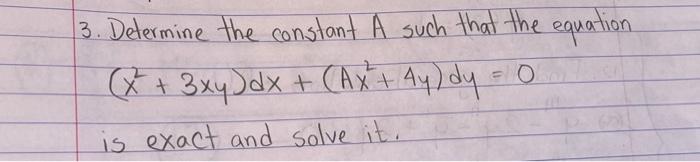 3. Determine the constant A such that the equation
(x² + 3xy)dx + (Ax² + 4y)dy = 0
is exact and solve it.